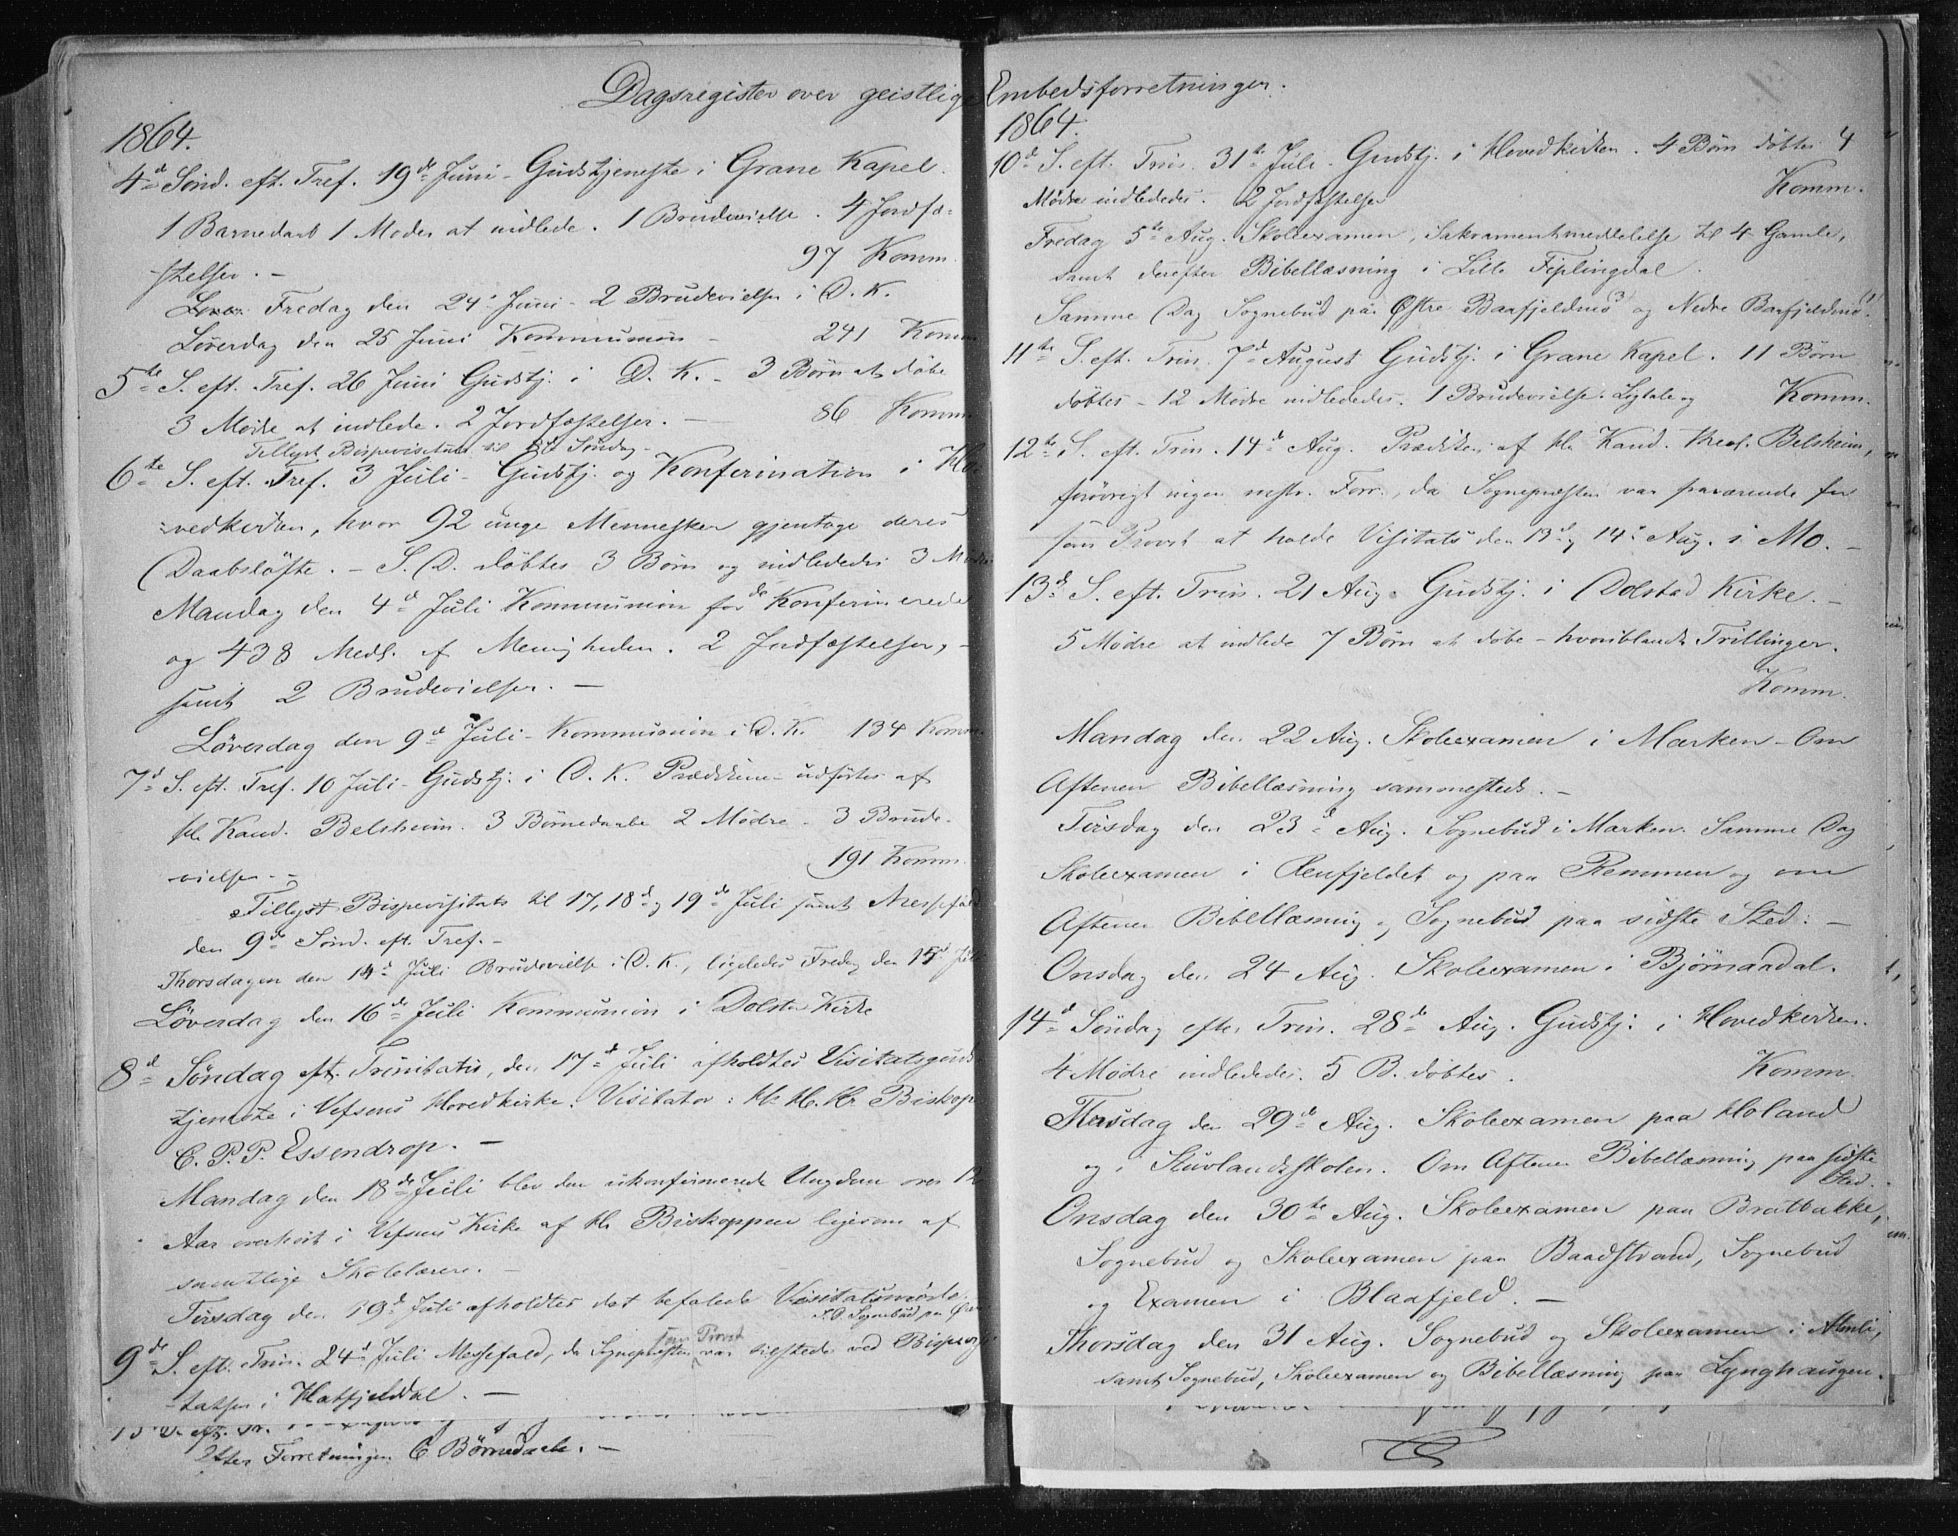 Dagsregister over geistlige Embedsforretninger.
1864.
4de Sönd. eft. Tref. 19de Juni - Gudstjeneste i Grane Kapel.
1 Barnedaab 1 Moder at indlede. 1 Brudevielse. 4 Jordfæ-
stelser. - 97 Komm.
Fredag den 24de Juni - 2 Brudevielser i D. K.
Löverdag den 25 Juni Kommunion - 241 Komm
5te S. eft. Tref. 26 Juni Gudstj. i D. K. - 3 Börn at döbe
3 Mödre at indlede. 2 Jordfæstelser. - 86 Komm.
Tillyst Bispevisitats til Söndag -
6te S. eft. Tref. 3 Juli - Gudstj. og Konfirmation i Ho-
vedkirken, hvor 92 unge Mennesker gjentoge deres
Daabslöfte. - S. D. döbtes 3 Börn og indlededes 3 Mödre
Mandag den 4de Juli Kommunion for de Konfirmerede
og 438 Medl. af Menigheden. 2 Jordfæstelser, -
samt 2 Brudevielser. -
Löverdag den 9de Juli - Kommunion i D. K. 134 Komm.
7de S. eft. Tref. 10 Juli - Gudstj. i D. K. Prædikenen udförtes af
Hr. Kand. Belsheim. 3 Börnedaabe 2 Mödre - 3 Brude-
vielser. - 191 Komm.
Tillyst Bispevisitats til 17, 18de og 19de Juli samt Messefald
den 9de Sönd. eft. Tref. -
Thorsdagen den 14de Juli Brudevielse i D. K., ligeledes Fredag den 15de Juli
Löverdag den 16de Juli Kommunion i Dolstad Kirke
8de Söndag eft. Trinitatis, den 17de Juli afholdtes Visitatsguds-
tjeneste i Vefsens Hovedkirke. Visitator: Hr. H. Hr. Biskop
C. P. P. Essendrop. -
Mandag den 18de Juli blev den ukonfirmerede Ungdom over 12
Aar overhört i Vefsens Kirke af Hr. Biskoppen ligesom af
samtlige Skolelærere. -
Tirsdag den 19de Juli afholdtes det befalede Visitatsmöde.
S. D. Sognebud paa
9de S. eft. Trin. 24de Juli Messefald, da Sognepræsten som Provst var tilstede ved Bispevisi-
tatsen i Hatfjeldal. -
efter Forretningen 6 Börnedaabe. -
1864.
10de S. eft. Trin. 31te Juli - Gudstj. i Hovedkirken. 4 Börn döbtes 4
Mödre indlededes. 2 Jordfæstelser Komm.
Fredag 5te Aug. Skoleexamen, Sakramentmeddelelse til 4 Gamle,
samt derefter Bibellæsning i Lille Fiplingdal.
Samme Dag Sognebud paa Östre Baafjeldmo og Nedre Baafjeldmo.
11te S. eft. Trin. 7de August Gudstj. i Grane Kapel. 11 Börn
döbtes - 12 Mödre indlededes. 1 Brudevielse. Ligtale og Komm.
12te S. eft. Trin. 14de Aug. Prædiken af Hr. Kand. theol. Belsheim,
forövrigt ingen Forr., da Sognepræsten var fraværende for
som Provst at holde Visitats den 13de og 14de Aug. i Mo. -
13de S. eft. Trin. 21 Aug. Gudstj. i Dolstad Kirke. -
5 Mödre at indlede 7 Börn at döbe - hvoriblandt Trillinger.
Komm.
Mandag den 22 Aug. Skoleexamen i Marken - Om
Aftenen Bibellæsning sammesteds. -
Tirsdag den 23de Aug. Sognebud i Marken. Samme Dag
Skoleexamen i Renfjeldet og paa Remmen og om
Aftenen Bibellæsning og Sognebud paa sidste Sted. -
Onsdag den 24 Aug. Skoleexamen i Björnaadal.
14de Söndag efter Trin. 28de Aug. Gudstj. i Hovedkirken.
4 Mödre indlededes. 5 B. döbtes. Komm.
Tirsdag den 29de Aug. Skoleexamen paa Holand
og i Stuvlandsskolen. Om Aftenen Bibellæsning paa sidste
Sted. -
Onsdag den 30te Aug. Skoleexamen paa Bratbakke,
Sognebud og Skoleexamen paa Baadstrand, Sognebud
og Examen i Blaafjeld. -
Thorsdag den 31 Aug. Sognebud og Skoleexamen i Almli,
samt Sognebud, Skoleexamen og Bibellæsning paa Lynghaugen.